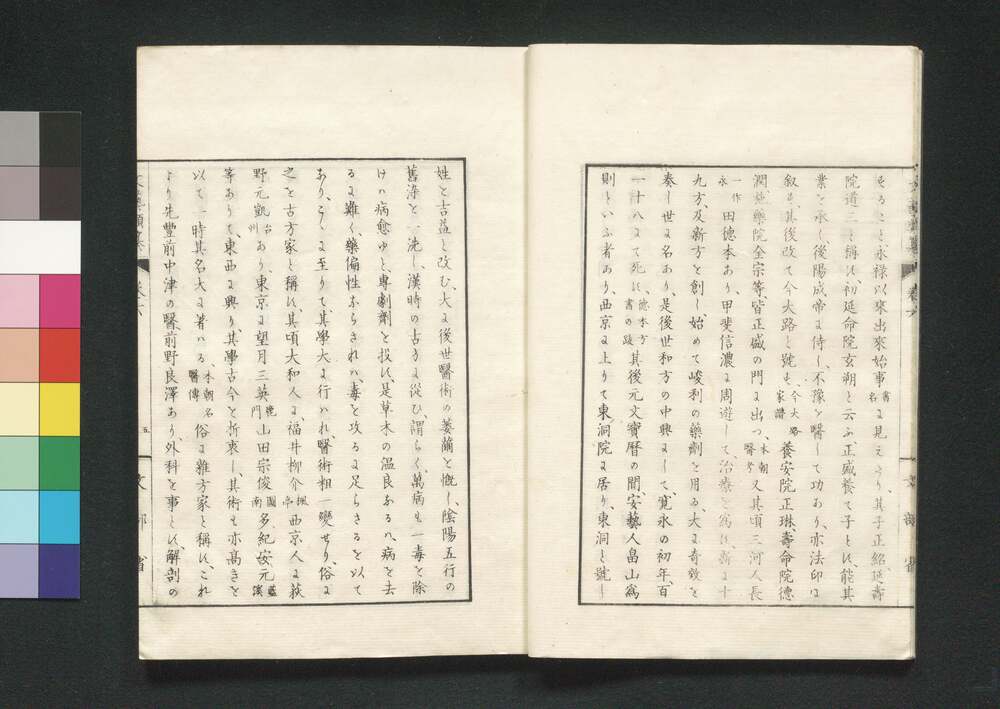 そること永禄以來出來始事書名に見えたり、其子正紹延壽
院道三と稱し、初延命院玄朔と云ふ、正盛養て子とし、能其
業を承く、後陽成帝に侍し、不豫を醫して功あり、亦法印に
叙す、其後改て今大路と號す、今大路家譜養安院正琳、壽命院德
潤、施藥院全宗等、皆正盛の門に出つ、本朝醫考又其頃三河人、長
一作永田德本あり、甲斐信濃に周遊して、治療を爲し、新に十
九方、及新方を創し、始めて峻利の藥劑を用ゐ、大に奇效を
奏し世に名あり、是後世和方の中興にして、寛永の初年、百
一十八にて死し、德本方書の跋其後元文寶暦の間、安藝人畠山爲
則といふ者あり、西京に上りて東洞院に居り、東洞と號し
姓を吉益と改む、大に後世醫術の萎薾を慨し、陰陽五行の
舊染を一洗し、漢時の古方に從ひ、謂らく、萬病は一毒を除
けハ病愈ゆと、專劇劑を投し、是草木の温良なるハ、病を去
るに難く、藥偏性ならされハ毒を攻るに足らさるを以て
あり、こゝに至りて其學大に行ハれ醫術相一變せり、俗に
之を古方家と稱し、其頃大和人に、福井柳介楓亭西京人に荻
野元凱台州あり、東京に望月三英鹿門山田宗俊圖南多紀安元藍溪
等ありて、東西に興り、其學古今を折衷し、其術も亦高きを
以て一時其名大に著はる、本朝名醫傳俗に雜方家と稱し、これ
より先豐前中津の醫前野良澤あり、外科を事とし、解剖の
五
文部省
文部省